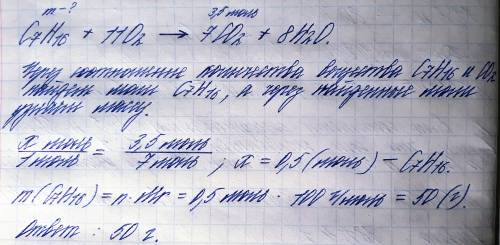 m - ? 3,5 моль
C7H16 + 11O2 → 7CO2 + 8H2O.
Через соотношение количества вещества C7H16 и CO2
найдем моли C7H16, а через найденные моли
массу.
x моль / 1 моль = 3,5 моль / 7 моль ; x = 0,5 (моль) – C7H16.
m(C7H16) = n · Mr = 0,5 моль · 100 г/моль = 50 (г).
Ответ : 50 г.